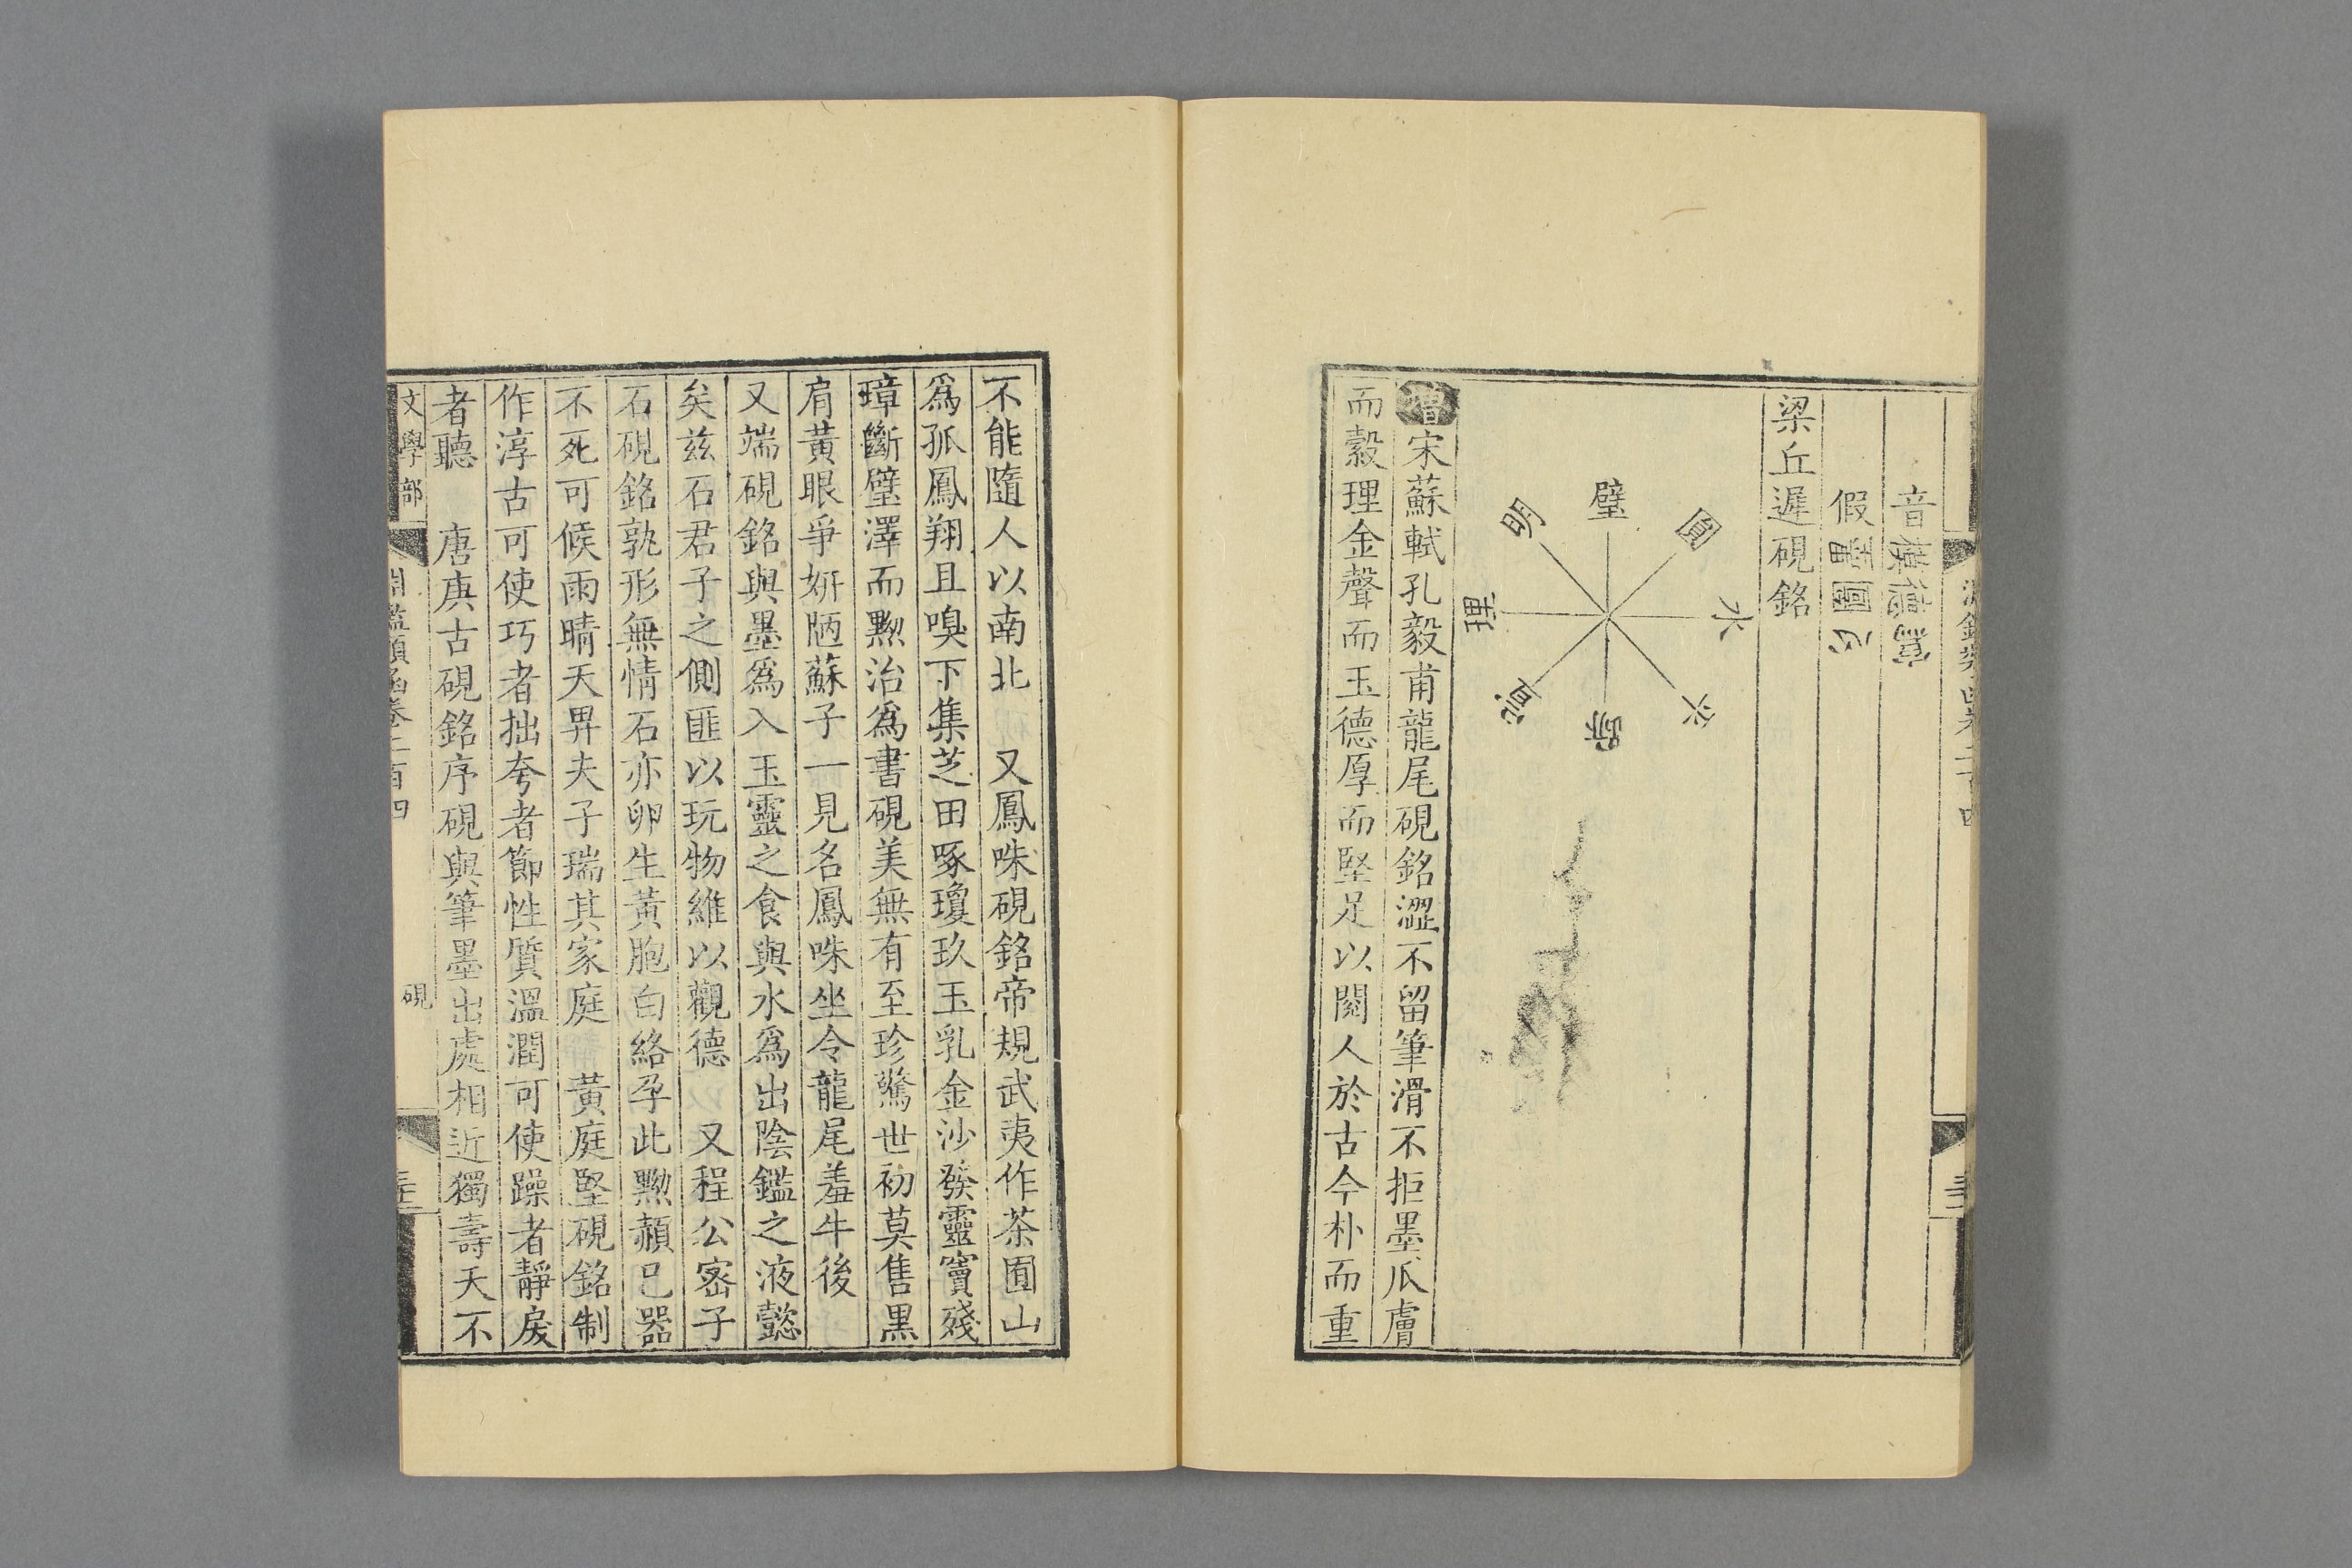 音
假
梁丘遲硯銘
璧
圓
水
明
增宋蘇軾孔毅甫龍尾硯銘澀不留筆滑不拒墨瓜膚
而縠理金聲而玉德厚而堅足以閱人於古今朴而重
不能隨人以南北 又鳳咮硯銘帝規武夷作茶囿山
爲孤鳳翔且嗅下集芝田啄瓊玖玉乳金沙發靈竇殘
璋斷璧澤而黝治爲書硯美無有至珍驚世初莫售黑
肩黃眼爭妍陋蘇子一見名鳳咮坐令龍尾羞牛後
又端硯銘與墨爲入玉靈之食與水爲出陰鑑之液懿
矣茲石君子之側匪以玩物維以觀德 又程公密子
石硯銘孰形無情石亦卵生黃胞白絡孕此黝赬已器
不死可候雨晴天畀夫子瑞其家庭 黃庭堅硯銘制
作淳古可使巧者拙夸者節性質溫潤可使躁者靜戾
者聽 唐庚古硯銘序硯與筆墨出處相近獨壽夭不
文學部 淵鑑類函卷二百四 硯